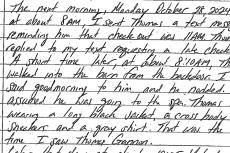 The next morning, Monday October 28, 2024
at about 8AM, I sent Thomas a text mess
reminding him that checkout was 11AM. Thom
replied to my text requesting a late check
A short time later, at about 8:10AM, Th
walked into the barn from the backdoor. I
said goodmorning to him and he nodded.
assumed he was going to the spa. Thomas
wearing a long black jacket, a cross body
sneakers and a gray shirt. That was the
time I saw Thomas Gannon.